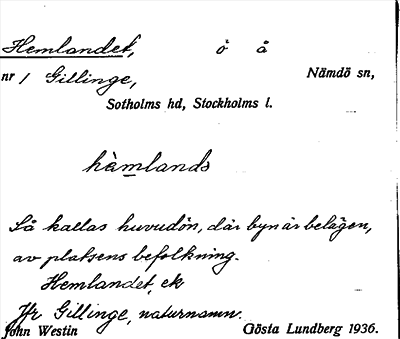 Hemlandet, ö å
nr 1 Gillinge, Nämdö sn,
Sotholms hd, Stockholms l.
hàmlandə
Så kallas huvudön, där byn är belägen,
av platsens befolkning.
Hemlandet, ek
Jfr Gillinge, naturnamn.
John Westin Gösta Lundberg 1936.